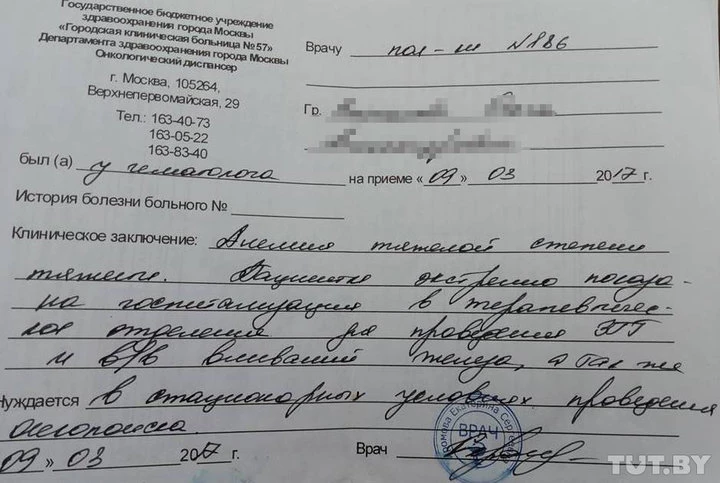 Государственное бюджетное учреждение
здравоохранения города Москвы
«Городская клиническая больница №57»
Департамента здравоохранения города Москвы
Онкологический диспансер
г. Москва, 105264,
Верхнепервомайская, 29
Тел.: 163-40-73
163-05-22
163-83-40
Врачу пол-ки №186
Гр.
был (а) у гематолога на приеме «09» 03 2017 г.
История болезни больного №
Клиническое заключение: Анемия тяжелой степени
тяжести. Пациентке экстренно показа-
на госпитализация в терапевтичес-
кое отделение для проведения ЭГГ
и в/в вливаний железа, а так же
Нуждается в стационарных условиях проведения
онкопоиска.
«09» 03 2017 г. Врач
ромова Екатерина Серг
ВРАЧ
TUT.BY